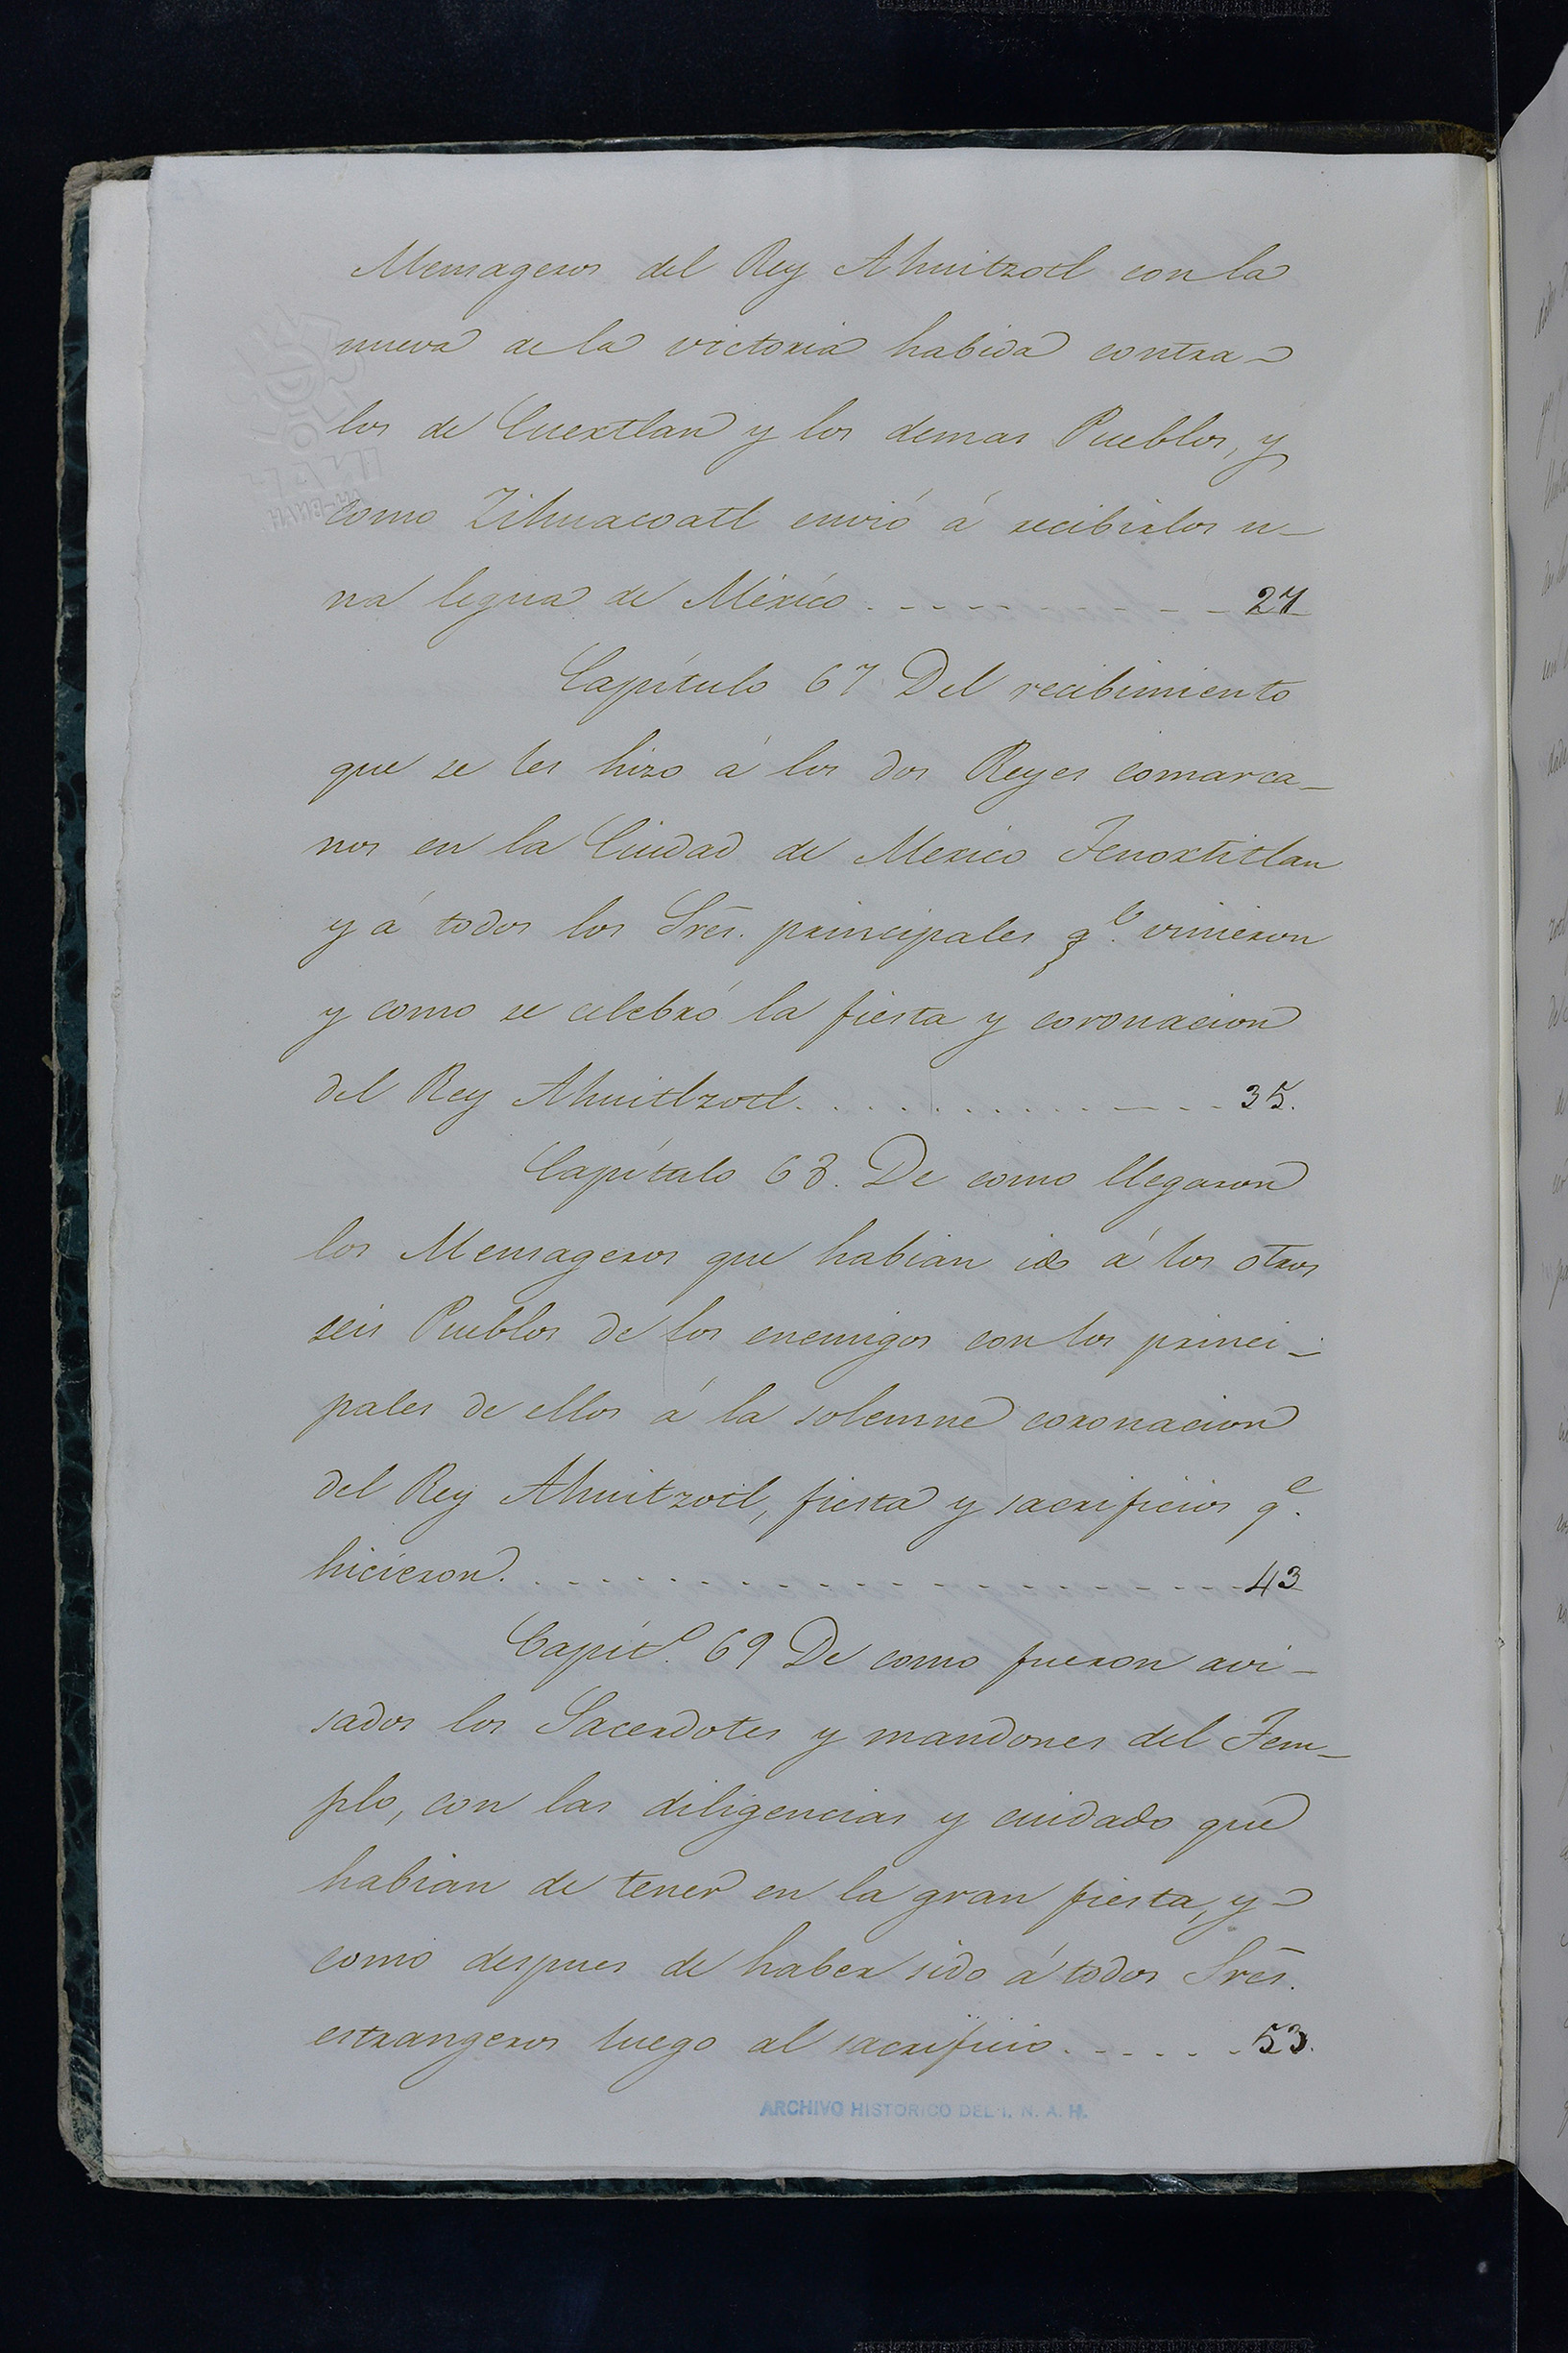 Mensageros del Rey Ahuitzotl con la
nueva de la victoria habida contra
los de Cuextlan y los demas Pueblos, y
como Zihuacoatl envió á recibirlos u-
na legua de México. - - - - - - - - - 27
Capítulo 67 Del recibimiento
que se les hizo á los dos Reyes comarca-
nos en la Ciudad de Mexico Tenoxtitlan
y á todos los Sres. principales qe. vinieron
y como se celebró la fiesta y coronacion
del Rey Ahuitlzotl. . . . . . . . . . . . . 35.
Capítulo 68. De como llegaron
los Mensageros que habian ido á los otros
seis Pueblos de los enemigos con los princi-
pales de ellos á la solemne coronacion
del Rey Ahuitzotl, fiesta y sacrificios qe.
hicieron. - - - - - - - - - - - - - - - - - - 43
Capitº. 69 De como fueron avi-
sados los Sacerdotes y mandones del Tem-
plo, con las diligencias y cuidado que
habian de tener en la gran fiesta, y
como despues de haber sido á todos Sres.
estrangeros luego al sacrificio. - - - - - 53.
ARCHIVO HISTORICO DEL I. N. A. H.